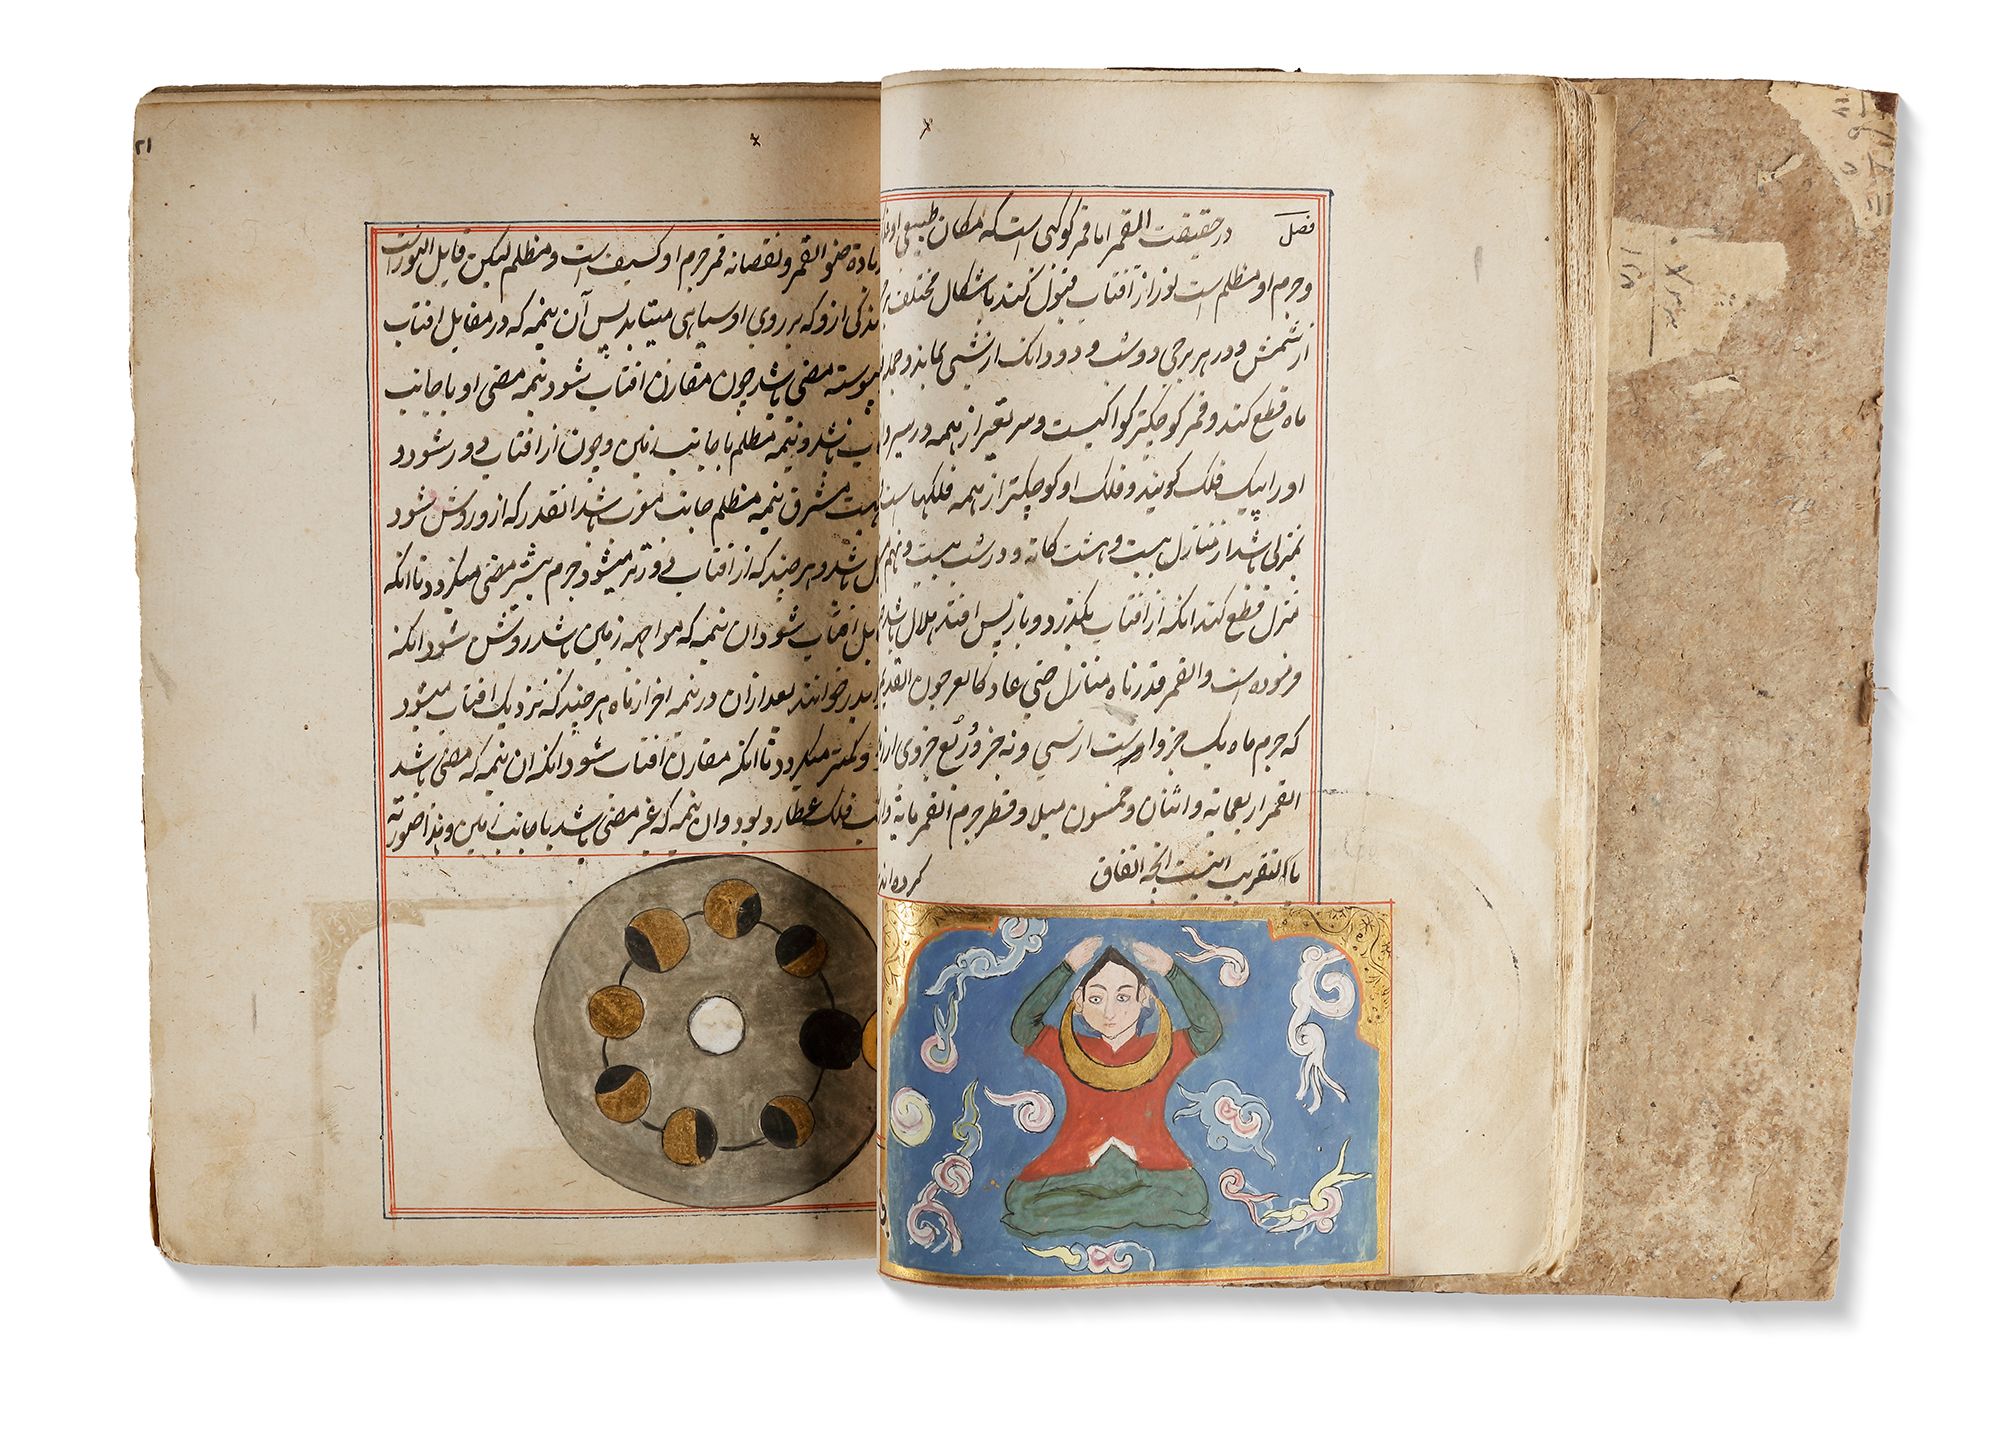 فصل در حقیقت القمر اما قمر کوکبی است که مکان طبیعی او
و جرم او مظلم است نور از آفتاب قبول کند باشکال مختلف
از شمس و در هر برجی دو شب و دو دانک از شبی بماند و جمله
ماه قطع کند و قمر کوچکتر کواکبست و سریعتر از همه در سیر
او را پیک فلک کویند و فلک او کوچکتر از همه فلکهاست
بمنزلی باشد از منازل بیست و هشت کانه و در شب بیست و نهم
منزل قطع کند انکه از افتاب بکذرد و باز پس افتد هلال باشد
فرموده است والقمر قدرناه منازل حتی عاد کالعرجون القدیم
که جرم ماه یک جزوا است از سی و نه جزو و ربع جزوی از
القمر اربعمایه و اثنان و خمسون میلا و قطر جرم القمر مایة
بالتقریب اینست انچه اتفاق کرده‌اند
۲۱
زیاده ضوء القمر و نقصانه قمر جرم او کسیف است و مظلم لیکن قابل النور است
اندکی ازو که بر روی او سیاهی میتابد پس آن نیمه که در مقابل افتاب
پیوسته مضی باشد چون مقارن افتاب شود نیمه مضی او با جانب
باشد و نیمه مظلم با جانب زمین و چون از افتاب دور شود و
مشرق نیمه مظلم جانب مغرب باشد انقدر که ازو روشن شود
باشد و هر چند که از افتاب دورتر میشود جرم بیشتر مضی میکردد تا انکه
مقابل افتاب شود ان نیمه که مواجهه زمین باشد روشن شود انکه
بدر خوانند بعد از ان در نیمه اخر از ماه هر چند که نزدیک افتاب میشود
و کمتر میکردد تا انکه مقارن افتاب شود انکه ان نیمه که مضی باشد
جانب فلک عطارد بود و ان نیمه که غیر مضی باشد با جانب زمین و هذا صورته